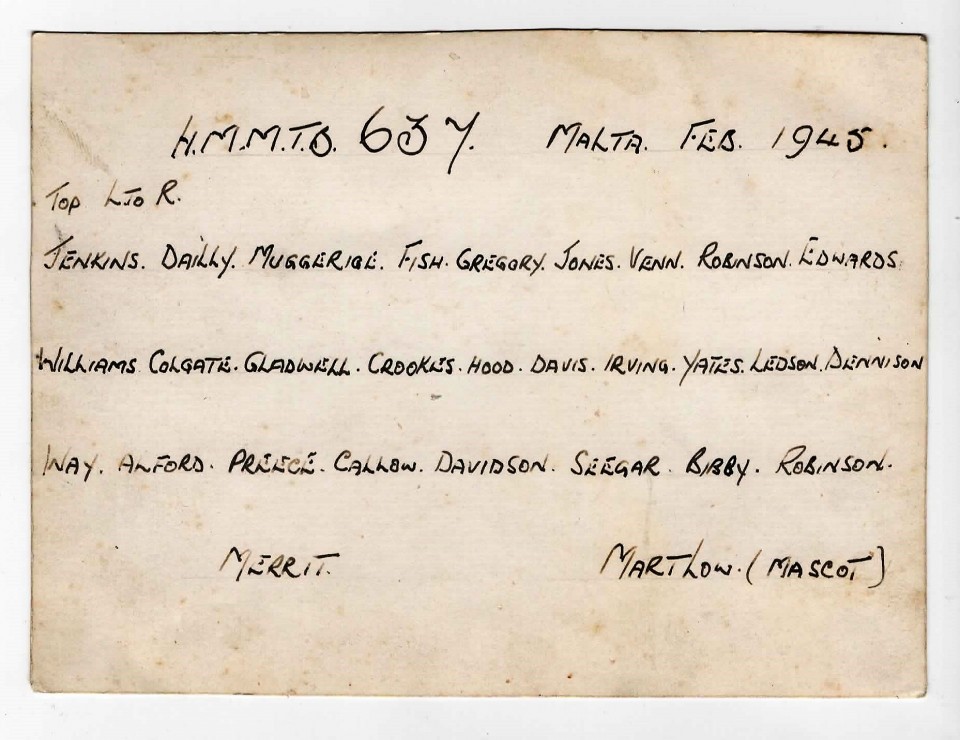 H.M.M.T.B. 637. MALTA. FEB. 1945.
TOP L TO R.
JENKINS. DAILLY. MUGGERIGE. FISH. GREGORY. JONES. VENN. ROBINSON. EDWARDS.
WILLIAMS. COLGATE. GLADWELL. CROOKES. HOOD. DAVIS. IRVING. YATES. LEDSON. DENNISON
WAY. ALFORD. PREECE. CALLOW. DAVIDSON. SEEGAR. BIBBY. ROBINSON.
MERRIT. MARTLOW. (MASCOT)